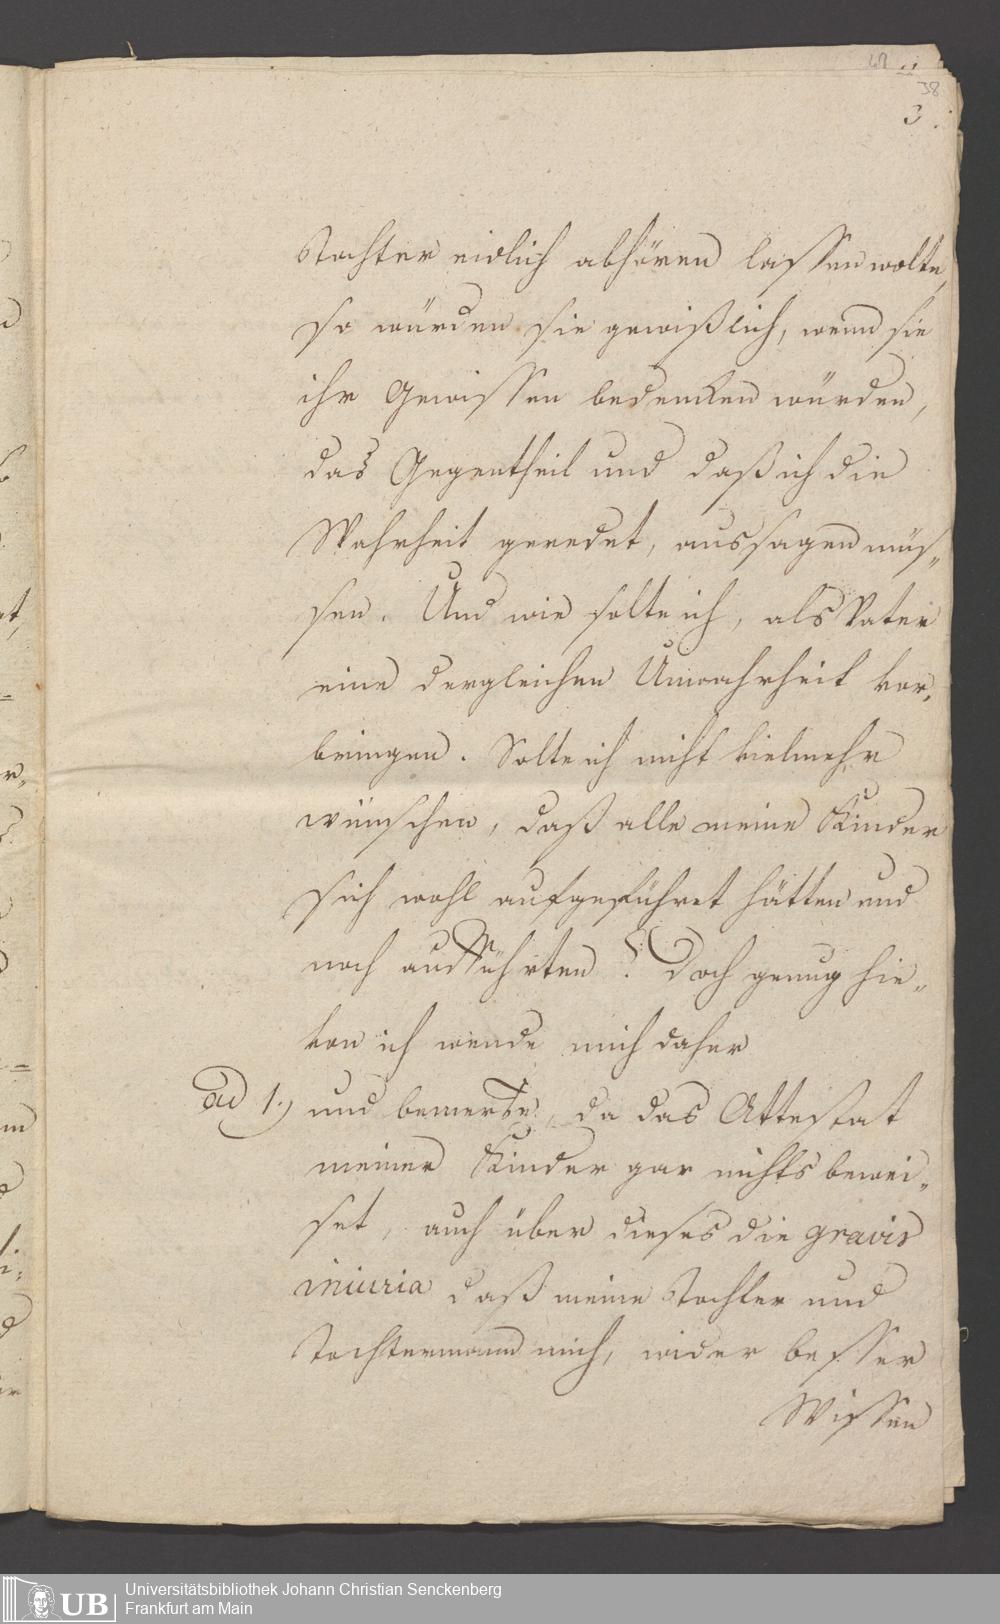 38
3.
Tochter eidlich abhören lassen wolte,
so würden sie gewißlich, wenn sie
ihr Gewissen bedencken würden,
das Gegentheil und daß ich die
Wahrheit geredet, aussagen müs„
sen. Und wie solte ich, als Vater
eine dergleichen Unwahrheit vor„
bringen. Solte ich nicht vielmehr
wünschen, daß alle meine Kinder
sich wohl aufgeführet hätten und
noch aufführten? Doch genug hie„
von ich wende mich daher
ad 1.) und bemerke, da das Attestat
meiner Kinder gar nichts bewei„
set, auch über dieses die gravis
iniuria daß meine Tochter und
Tochtermann mich, wider besser
Wissen
UB
Universitätsbibliothek Johann Christian Senckenberg
Frankfurt am Main